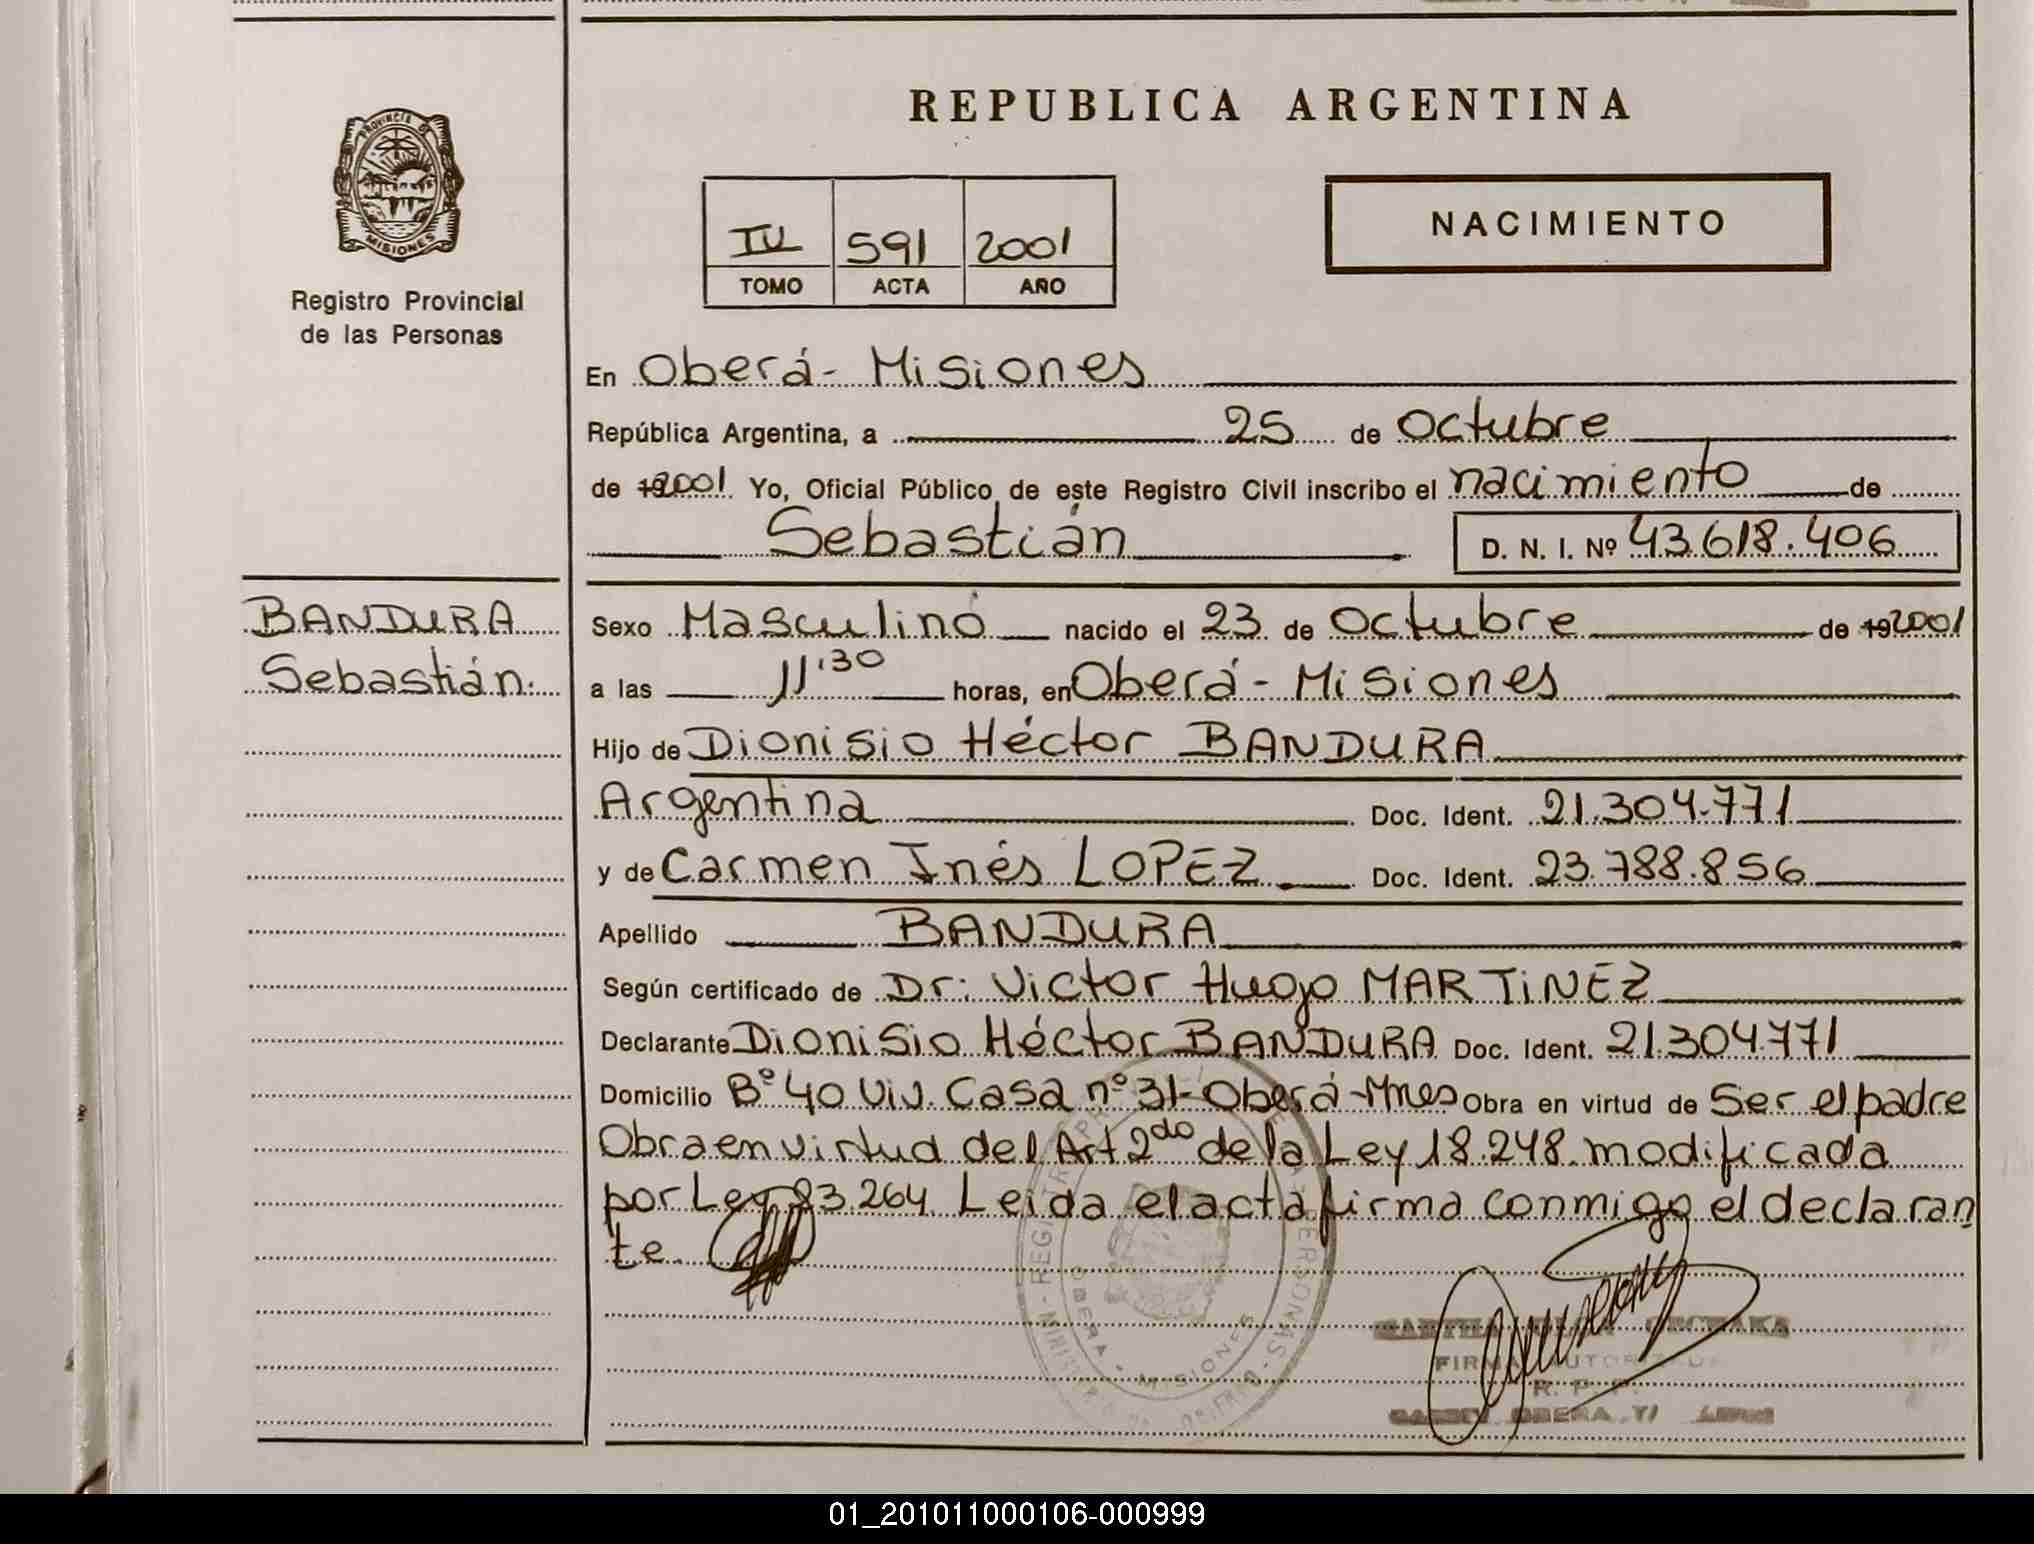 REPUBLICA ARGENTINA
PROVINCIA DE
MISIONES
Registro Provincial
de las Personas
IV 591 2001
TOMO ACTA AÑO
NACIMIENTO
En Oberá - Misiones
República Argentina, a 25 de Octubre
de 192001 Yo, Oficial Público de este Registro Civil inscribo el nacimiento de
Sebastián D. N. I. Nº 43.618.406
BANDURA
Sebastián.
Sexo Masculino nacido el 23 de Octubre de 192001
a las 11:30 horas, en Oberá - Misiones
Hijo de Dionisio Héctor BANDURA
Argentina Doc. Ident. 21.304.771
y de Carmen Inés LOPEZ Doc. Ident. 23.788.856
Apellido BANDURA
Según certificado de Dr: Victor Hugo MARTINEZ
Declarante Dionisio Héctor BANDURA Doc. Ident. 21.304.771
Domicilio Bº 40 Viv. Casa nº 31- Oberá - Mnes Obra en virtud de Ser el padre
Obra en virtud del Art 2do de la Ley 18.248 modificada
por Ley 23.264 Leida el acta firma conmigo el declaran
te.
OBERA - MISIONES
R. P. P.
01_201011000106-000999